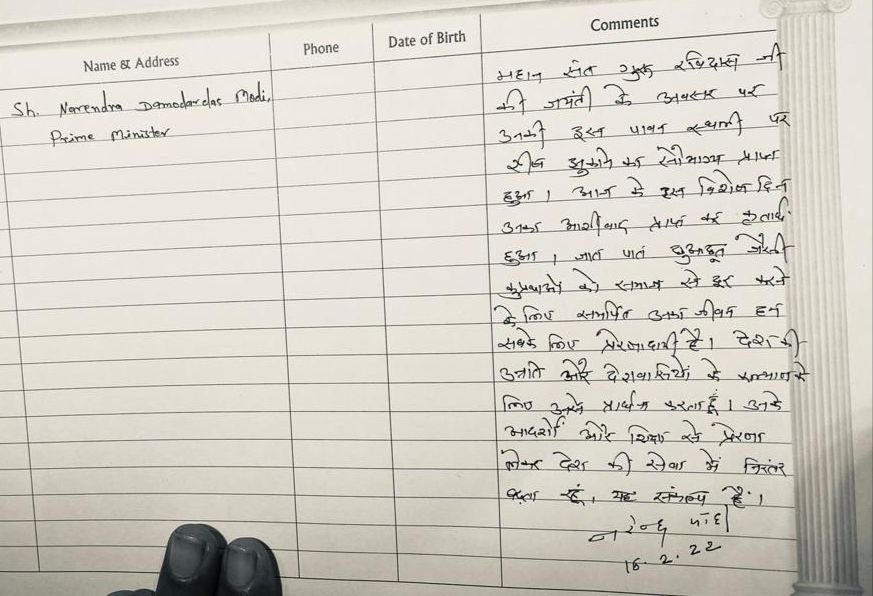 Name & Address
Phone
Date of Birth
Comments
Sh. Narendra Damodardas Modi,
Prime Minister
महान संत गुरू रविदास जी
की जयंती के अवसर पर
उनकी इस पावन स्थली पर
शीश झुकाने का सौभाग्य प्राप्त
हुआ। आज के इस विशेष दिन
उनका आशीर्वाद प्राप्त कर कृतार्थ
हुआ। जात पात छुआछूत जैसी
कुप्रथाओं को समाज से दूर करने
के लिए समर्पित उनका जीवन हम
सबके लिए प्रेरणादायी है। देश की
उन्नति और देशवासियों के कल्याण के
लिए उनसे प्रार्थना करता हूँ। उनके
आदर्शों और शिक्षा से प्रेरणा
लेकर देश की सेवा में निरंतर
रहूं, यह संकल्प है।
नरेन्द्र मोदी
16.2.22